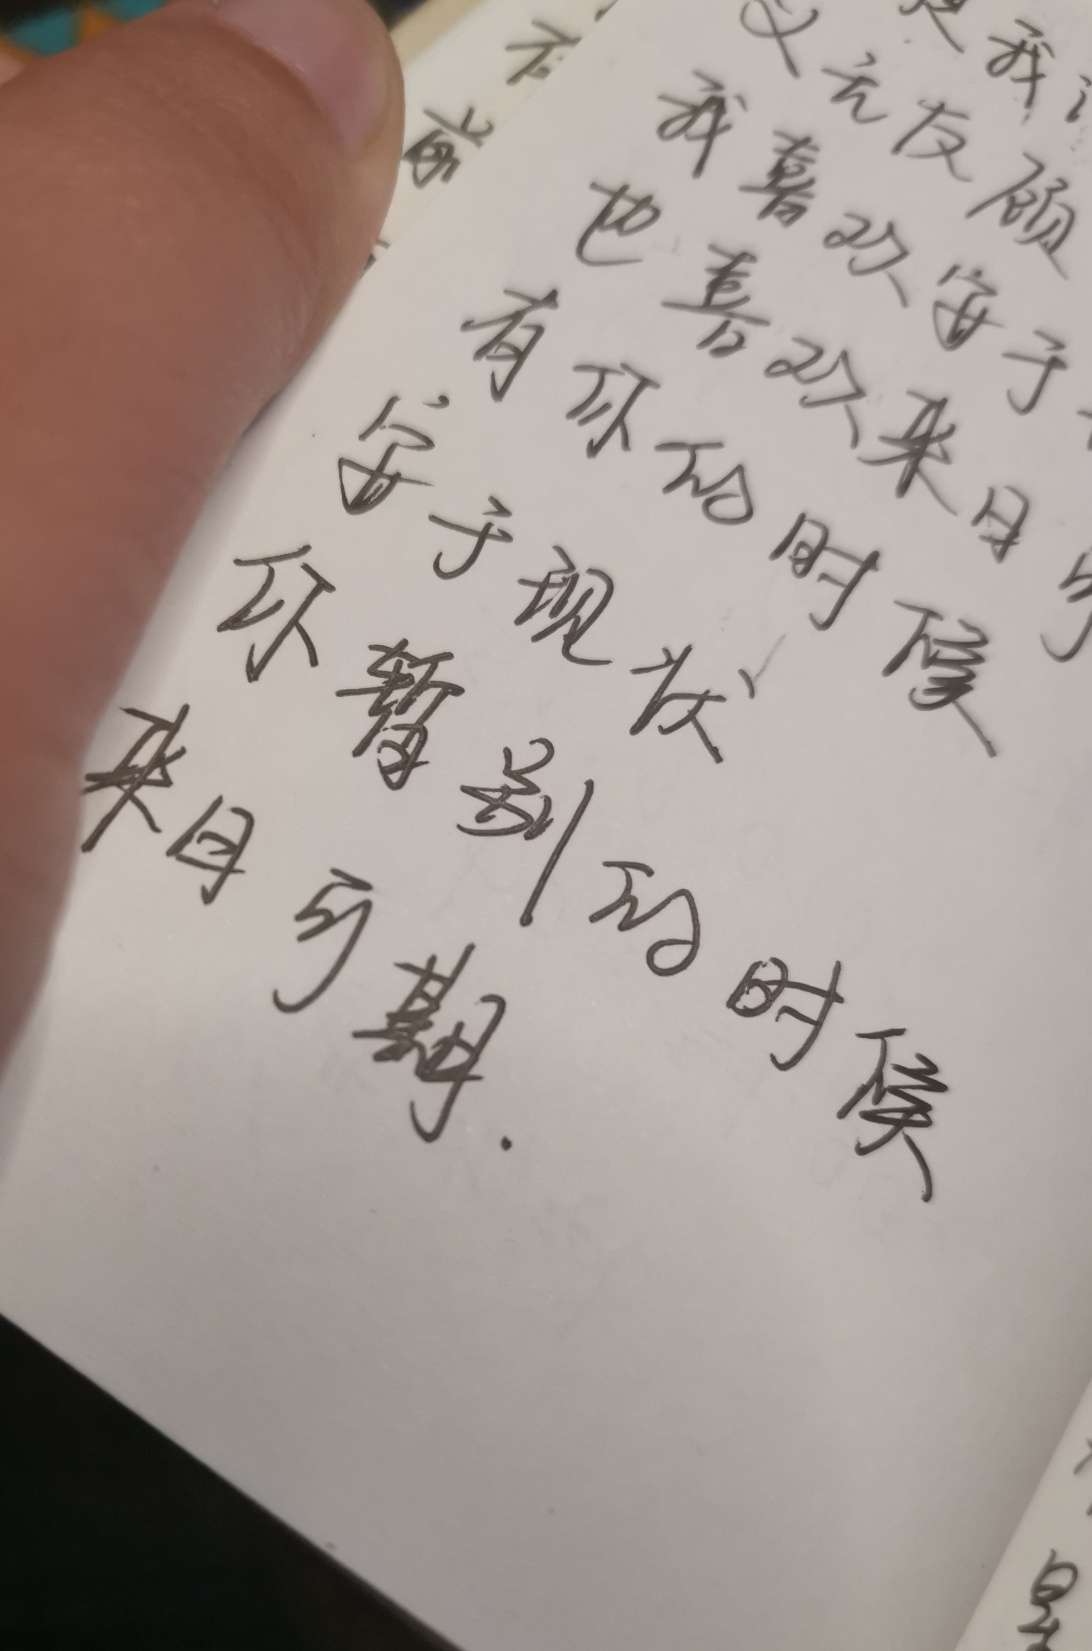 是我
义无反顾
我喜欢安于
也喜欢来日可
有你的时候
安于现状
你暂别的时候
来日可期.